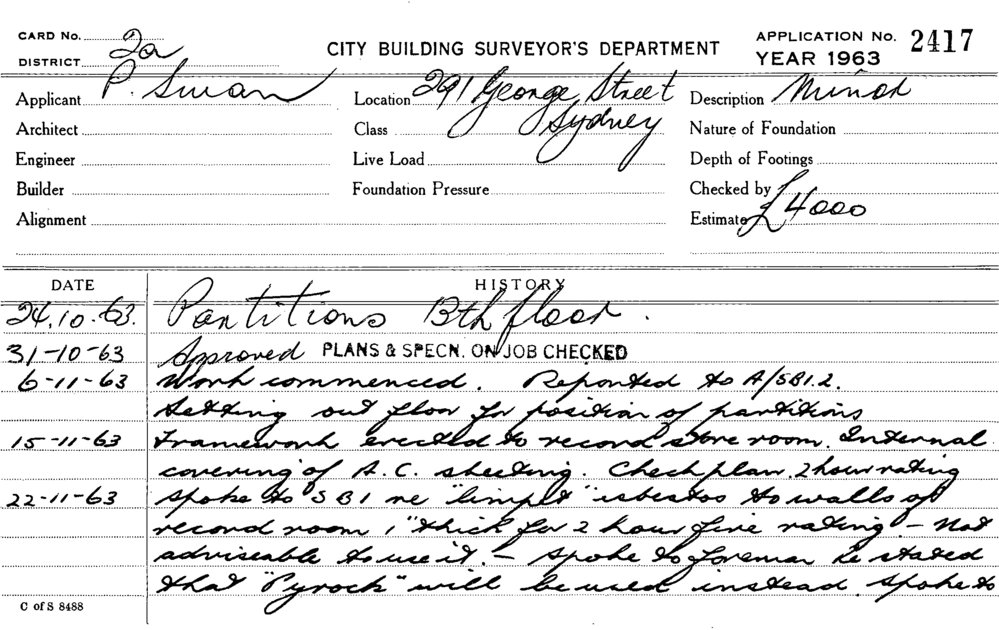 CARD No. 2a
DISTRICT
CITY BUILDING SURVEYOR'S DEPARTMENT
APPLICATION No. 2417
YEAR 1963
Applicant P. Swan
Location 291 George Street
Sydney
Description Minor
Architect
Class
Nature of Foundation
Engineer
Live Load
Depth of Footings
Builder
Foundation Pressure
Checked by
Alignment
Estimate £4000
DATE HISTORY
24.10.63. Partitions 13th floor.
31-10-63 Approved PLANS & SPECN. ON JOB CHECKED
6-11-63 Work commenced. Reported to A/SBI.2.
Setting out floor for position of partitions
15-11-63 Framework erected to record store room. Internal
covering of A.C. sheeting. Check plan. 2 hour rating
22-11-63 spoke to SBI re "limpet" asbestos to walls of
record room 1" thick for 2 hour fire rating - Not
adviseable to use it. - spoke to foreman he stated
that "Pyrock" will be used instead. spoke to
C of S 8488